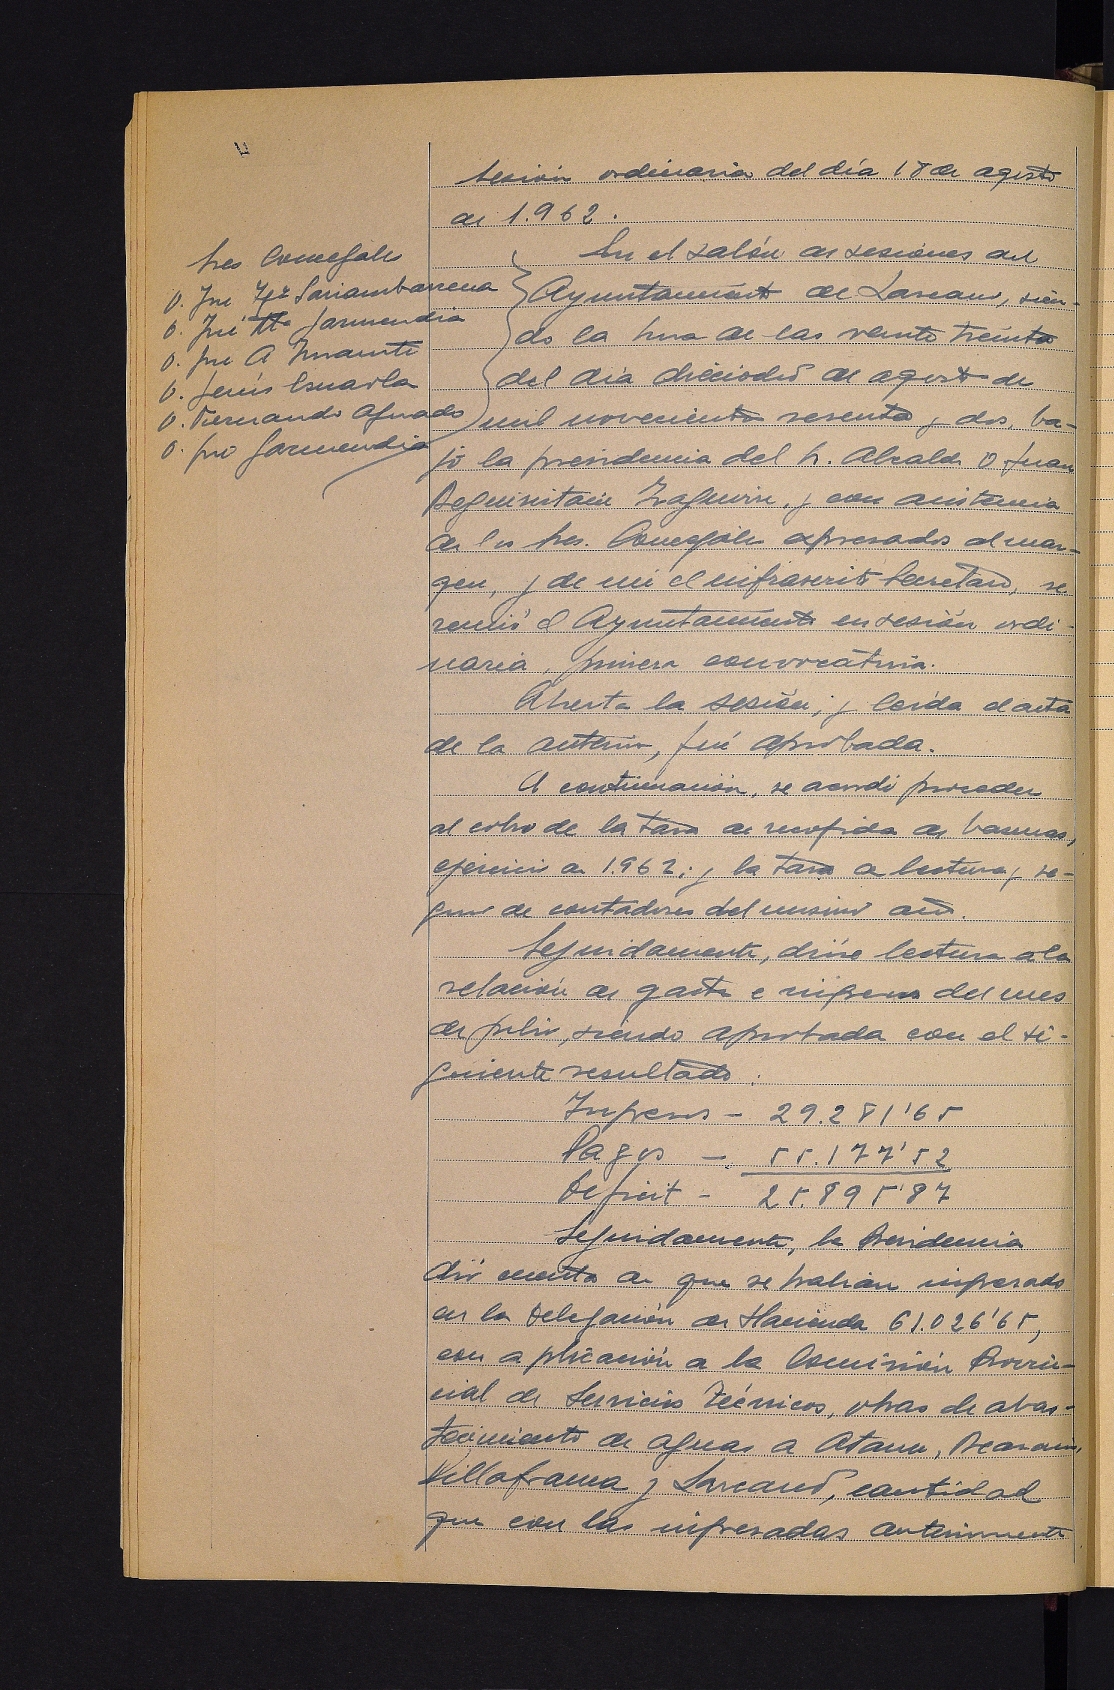 Sesión ordinaria del día 18 de agosto
de 1.962.
Sres Concejales
D. José Mª Sariambarrena
D. José Mª Garmendia
D. José A
D. Jesús
D. Fernando Aguado
D. José Garmendia
En el salón de sesiones del
Ayuntamiento de Lazcano, sien-
do la hora de las veinte treinta
del día dieciocho de agosto de
mil novecientos sesenta y dos, ba-
jo la presidencia del Sr. Alcalde D Juan
Beguiristain y con asistencia
de los Sres. Concejales expresados al mar-
gen, y de mi el infrascrito Secretario, se
reunió el Ayuntamiento en sesión ordi-
naria, primera convocatoria.
Abierta la sesión, y leída el acta
de la anterior, fué aprobada.
A continuación, se acordó proceder
al cobro de la tasa de recogida de basuras,
ejercicio de 1.962; y la tasa de lectura y se-
guro de contadores del mismo año.
Seguidamente, dióse lectura a la
relación de gastos e ingresos del mes
de julio, siendo aprobada con el si-
guiente resultado:
Ingresos - 29.281'65
Pagos - 55.177'52
Deficit - 25.895'87
Seguidamente, la Presidencia
dió cuenta de que se habían ingresado
en la Delegación de Hacienda 61.026'65,
con aplicación a la Comisión Provin-
cial de Servicios Técnicos, obras de abas-
tecimiento de aguas a Ataun, Beasain,
Villafranca y Lazcano, cantidad
que con las ingresadas anteriormente